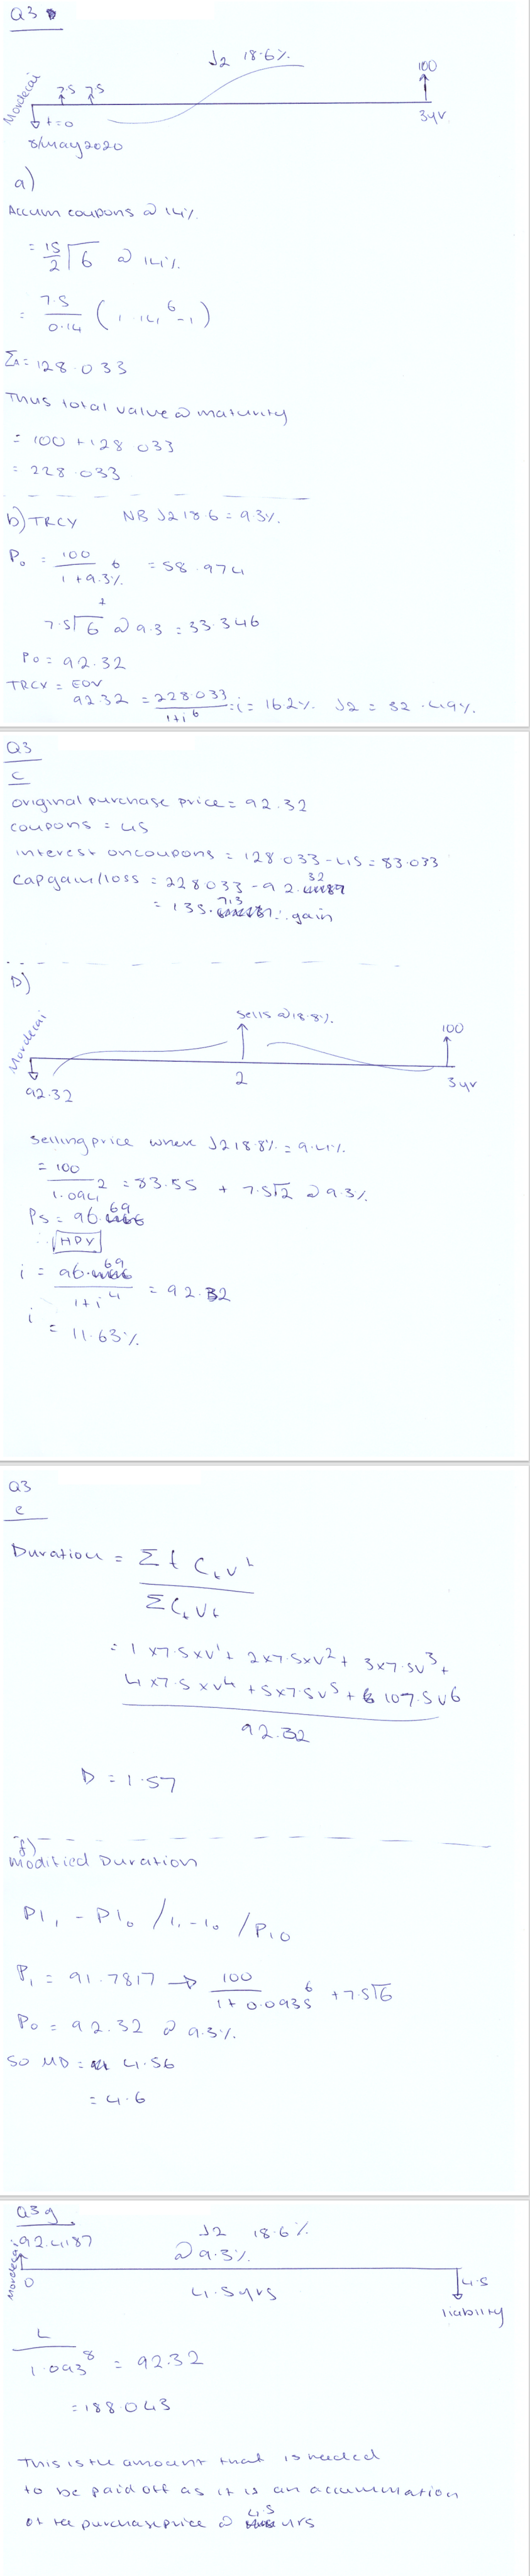 Q3
J2 18.6%
Mordecai
7.5 7.5
100
t=0
3yr
8/May 2020
a)
Accum coupons @ 14%
= 15/2 ⌐6 @ 14%
= 7.5/0.14 (1.14^6 -1)
= 128.033
Thus total value @ maturity
= 100 + 128.033
= 228.033
b) TRCY NB J2 18.6 = 9.3%
P0 = 100/1+9.3%^6 = 58.974
+
7.5⌐6 @ 9.3 = 33.346
P0 = 92.32
TRCY = EOV
92.32 = 228.033/1+i^6 : i = 16.2% J2 = 32.49%
Q3
c
original purchase price = 92.32
coupons = 45
interest on coupons = 128.033 - 45 = 83.033
Cap gain/loss = 228.033 - 92.32
= 135.713 ∴ gain
D)
Sells @ 18.8%
Mordecai
100
92.32
2
3yr
Selling price where J2 18.8% = 9.4%
= 100/1.094^2 = 83.55 + 7.5⌐2 @ 9.3%
Ps = 96.69
∴ HPY
i = 96.69/1+i^4 = 92.32
i = 11.63%
Q3
e
Duration = Σ t Ct v^t / Σ Ct Vt
= 1 x 7.5 x v^1 + 2 x 7.5 x v^2 + 3 x 7.5v^3 +
4 x 7.5 x v^4 + 5 x 7.5v^5 + 6 107.5v^6
92.32
D = 1.57
f)
Modified Duration
Pi1 - Pi0 / i1 - i0 / Pi0
P1 = 91.7817 → 100/1+0.0935^6 + 7.5⌐6
P0 = 92.32 @ 9.3%
so MD = 4.56
= 4.6
Q3 g
92.4187
J2 18.6%
@ 9.3%
Mordecai
0
4.5yrs
4.5
liability
L/1.093^8 = 92.32
= 188.043
This is the amount that is needed
to be paid off as it is an accumulation
of the purchase price @ 4.5 yrs